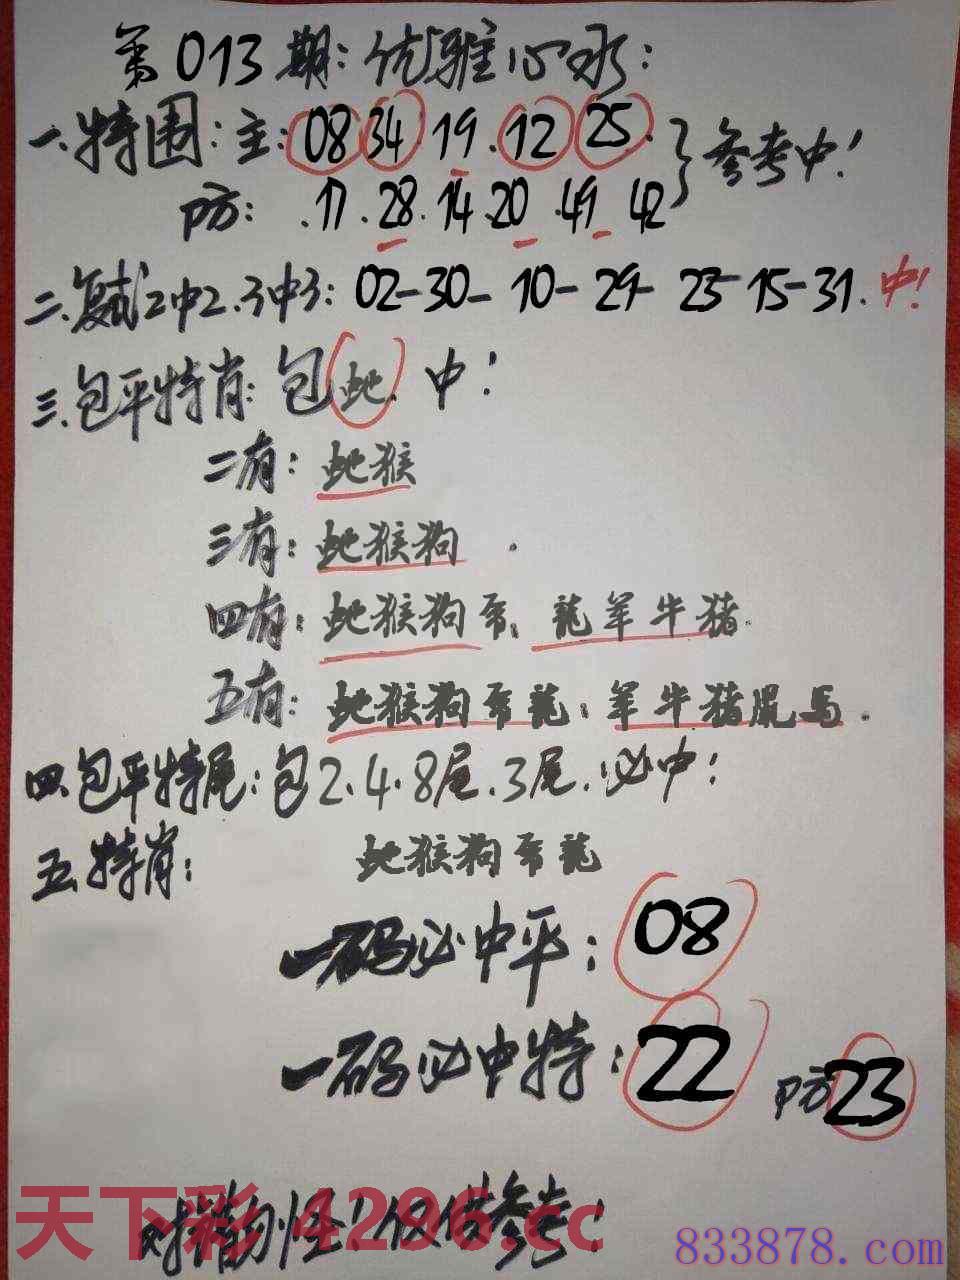 第013期:优雅心水:
一.特围:主:08 34.19.12 25.
防:.17.28.14.20.49 42
}参考中!
二.复式2中2.3中3:02-30-10-29-23-15-31.中!
三.包平特肖:包蛇.中!
二有:蛇猴
三有:蛇猴狗.
四有:蛇猴狗帝.龍羊牛猪.
五有:蛇猴狗帝龍:羊牛猪鼠馬.
四.包平特尾:包2.4.8尾.3尾.必中!
五.特肖:蛇猴狗帝龍
一码必中平:08
一码必中特:22 防23
对错勿怪!仅供参考!
天下彩 4296.cc
833878.com